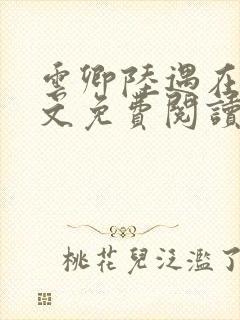 雲卿陸遇在
文免費閱讀
桃花兒泛濫了